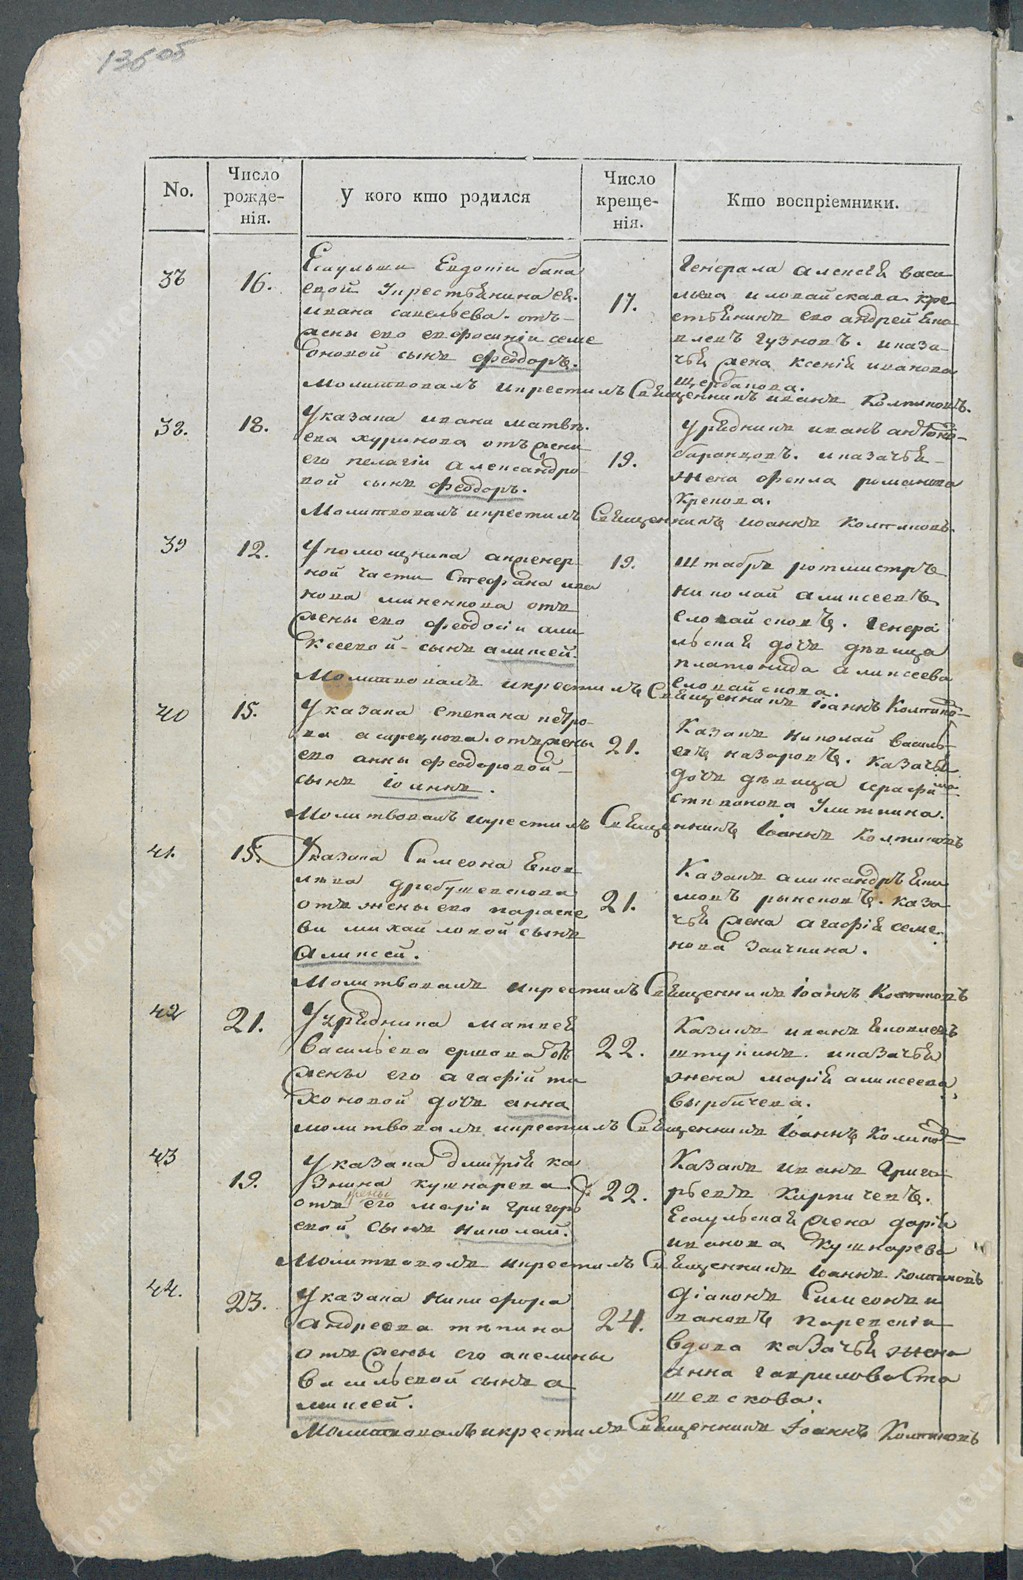 136об
No.
Число рожде-нія.
У кого кто родился
Число креще-нія.
Кто воспріемники.
37
16.
Есаульши Евдокіи
евой Укрестьянина ея
ивана савельева отъ
жены его ефросиніи семе
оновой сынъ феодоръ.
17.
Генерала алексея васи
льева иловайскава кре
стьянинъ его андрей
гузновъ. иказа
чья жена ксенія иванова
щербакова.
Молитвовалъ икрестилъ Священникъ иванъ Колпиковъ.
38.
18.
Указака ивана матве
ева журикова отъ жены
его пелагіи александро
вой сынъ феодоръ.
19.
Урядникъ иванъ
баранцовъ. иказачья
жена фекла романова
крекова.
Молитвовалъ икрестилъ Священникъ иоаннъ Колпиковъ.
39
12.
Упомощника инженер
ной части Стефана ива
нова миненкова отъ
жены его феодосіи али
ксеевой сынъ аликсей.
19.
Штабъ ротмистръ
николай аликсеевъ
еловайсковъ. Генера
льская дочь девица
платонида аликсеева
еловайскова.
Молитвовалъ икрестилъ Священникъ Іоаннъ Колпико
40
15.
Указака степана петро
ва отъжены
его анны феодоровой
сынъ Іоаннъ.
21.
Казакъ николай василь
евъ назаровъ. казачья
дочь девица
степанова Улиткина.
Молитвовалъ икрестилъ Священникъ Іоаннъ Колпиковъ
41.
15.
Указака Симеона Яков
лева дребушевскова
отъ жены его параске
вы михайловой сынъ
Аликсей.
21.
Казакъ александръ
рынсковъ. каза
чья жена агафія семе
нова заичкина.
Молитвовалъ икрестилъ Священникъ Іоаннъ Колпиковъ
42
21.
Уурядника матвея
Васильева ершова отъ
жены его агафіи ти
хоновой дочь анна
22.
Казакъ иванъ яковлевъ
штукинъ. иказачья
жена марія аликсеева
вырбичева.
молитвовалъ икрестилъ Священникъ Іоаннъ Колпков
43
19.
Указака дмитрія ка
зьмина кушнарева
отъ жены его маріи григорь
евой сынъ николай.
22.
Казакъ иванъ Григо
рьевъ Карпичевъ.
Есаульская жена дарія
иванова кушнарева
Молитвовалъ икрестилъ Священникъ Іоаннъ Колпиковъ
44.
23.
Указака никифора
андреева тяпкина
отъ жены его акелины
Васильевой сынъ а
ликсей.
24.
Діаконъ Симеонъ и
вановъ
вдова казачья жена
анна гаврилова Ста
шевскова.
Молитвовалъ икрестилъ Священникъ Іоаннъ Колпиковъ